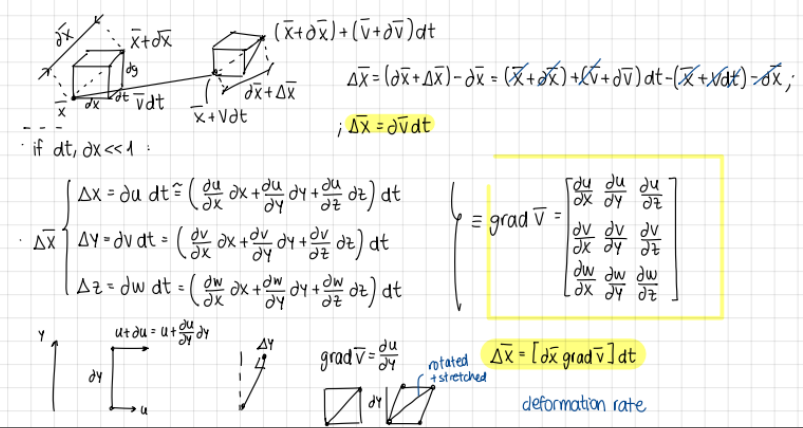 ∂x̄
x̄+∂x̄
∂y
∂x
∂t
x̄
v̄dt
(x̄+∂x̄)+(v̄+∂v̄)dt
∂x̄+Δx̄
x̄+v∂t
Δx̄=(∂x̄+Δx̄)-∂x̄ = (x̄+∂x̄)+(v̄+∂v̄)dt-(x̄+v̄dt)-∂x̄ ;
; Δx̄=∂v̄dt
· if dt, ∂x<<1 :
· Δx̄ { Δx=∂u dt ≅ (∂u/∂x ∂x+∂u/∂y ∂y+∂u/∂z ∂z) dt
Δy=∂v dt = (∂v/∂x ∂x+∂v/∂y ∂y+∂v/∂z ∂z) dt
Δz=∂w dt = (∂w/∂x ∂x+∂w/∂y ∂y+∂w/∂z ∂z) dt
≡ grad v̄ = [∂u/∂x ∂u/∂y ∂u/∂z
∂v/∂x ∂v/∂y ∂v/∂z
∂w/∂x ∂w/∂y ∂w/∂z]
y
u+∂u = u+∂u/∂y ∂y
∂y
u
Δy
grad v̄ = ∂u/∂y
rotated
+stretched
∂y
Δx̄ = [∂x̄ grad v̄] dt
deformation rate